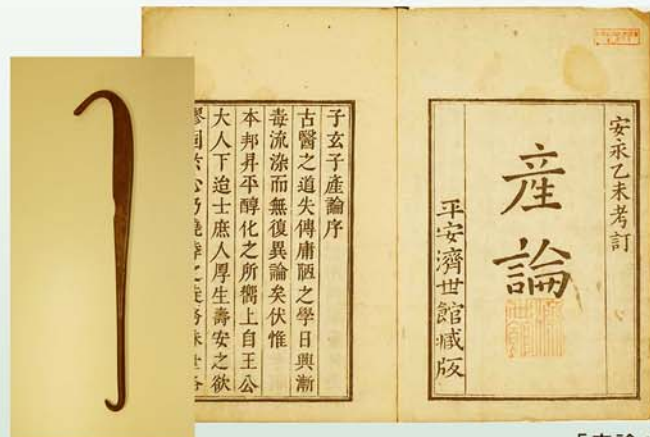 安永乙未考訂
産論
平安濟世館藏版
子玄子産論序
古醫之道失傳庸陋之學日興漸
毒流染而無復異論矣伏惟
本邦昇平醇化之所嚮上自王公
大人下迨士庶人厚生壽安之欲
「産論